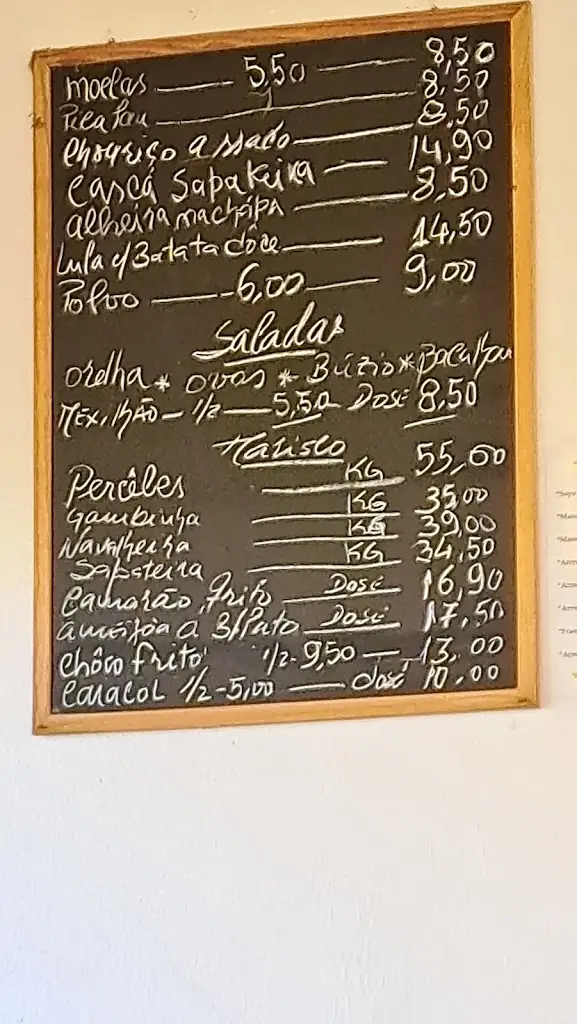 moelas — 5,50 — 8,50
Pica Pau — 8,50
Chouriço assado — 8,50
Casca Sapateira — 14,90
alheira machipa — 8,50
Lula c/ Batata dôce — 14,50
Polvo — 6,00 — 9,00
Saladas
orelha * ovas * Búzio * Bacalhau
Mexilhão - 1/2 — 5,50 Dose 8,50
Marisco
Percêbes — KG 55,00
Gambinha — KG 35,00
Navalheira — KG 39,00
Sapateira — KG 34,50
Camarão frito — Dose 16,90
amêijoa a B/Pato — Dose 17,50
Chôco frito 1/2 - 9,50 — 13.00
Caracol 1/2 - 5,00 — dose 10.00